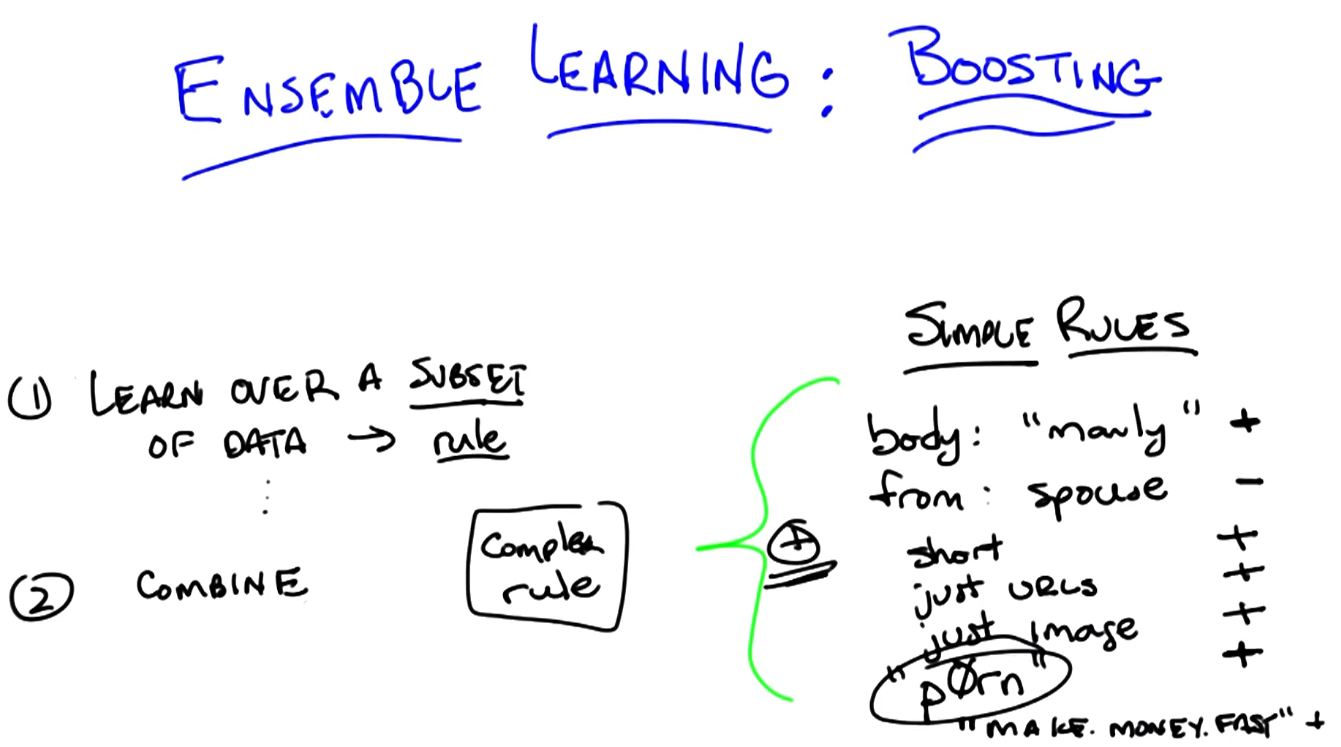 ENSEMBLE LEARNING: BOOSTING
① LEARN OVER A SUBSET
OF DATA → rule
⋮
② COMBINE
Complex
rule
+
SIMPLE RULES
body: "manly" +
from: spouse −
short +
just URLs +
just image +
"pØrn" +
"MAKE.MONEY.FAST" +